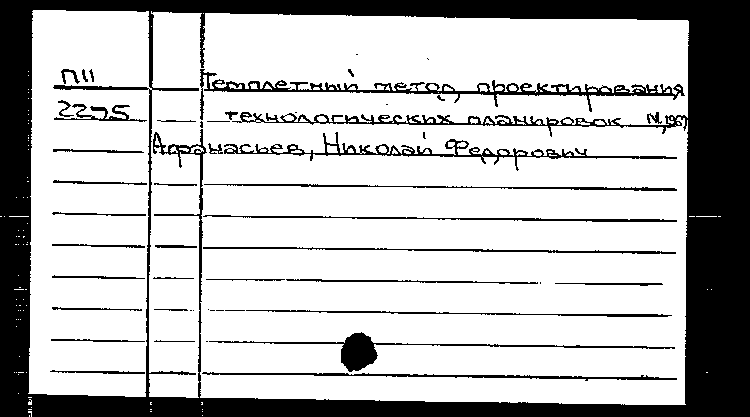 П11 Темплетный метод проектирования
2275 технологических планировок М, 1967
Афанасьев, Николай Федорович